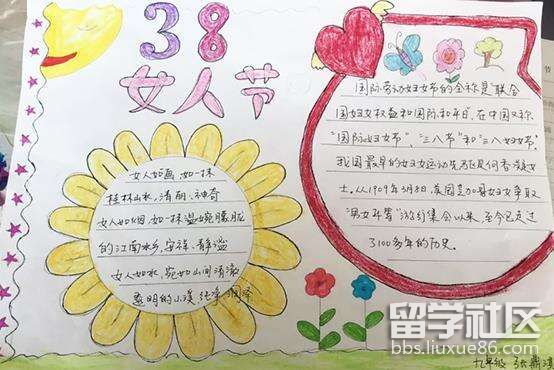 38
女人节
女人如画,如一抹
桂林山水,清丽、神奇
女人如烟,如一抹温婉朦胧
的江南水乡,安祥、静谧
女人如水,宛如山间清澈
透明的小溪 纯净 润泽
国际劳动妇女节的全称是“联合
国妇女权益和国际和平日”,在中国又称
“国际妇女节”、“三八节”和“三八妇女节”。
我国最早的妇女运动先驱是何香凝女
士。从1909年3月8日,美国芝加哥妇女争取
“男女平等”游行集会以来,至今已走过
了100多年的历史。
九年级 张
留学社区
bbs.liuxue86.com